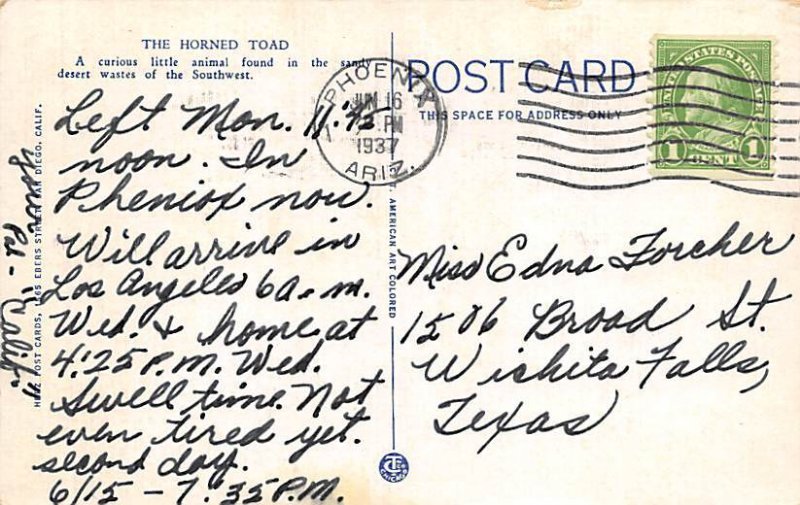 THE HORNED TOAD
A curious little animal found in the sandy
desert wastes of the Southwest.
Left Mon. 11:45
noon. In
Pheniox now.
Will arrive in
Los Angeles 6 a.m.
Wed. & home at
4:25 P.M. Wed.
Swell time. Not
even tired yet.
second day.
6/15 – 7:35 P.M.
Your
Pal –
"Calif"
POST CARD
THIS SPACE FOR ADDRESS ONLY
PHOENIX
JUN 16
PM
1937
ARIZ.
UNITED STATES POSTAGE
1 CENT 1
Miss Edna Forcher
1506 Broad St.
Wichita Falls,
Texas
POST CARDS, EBERS STREET, SAN DIEGO, CALIF.
AMERICAN ART COLORED
CHICAGO